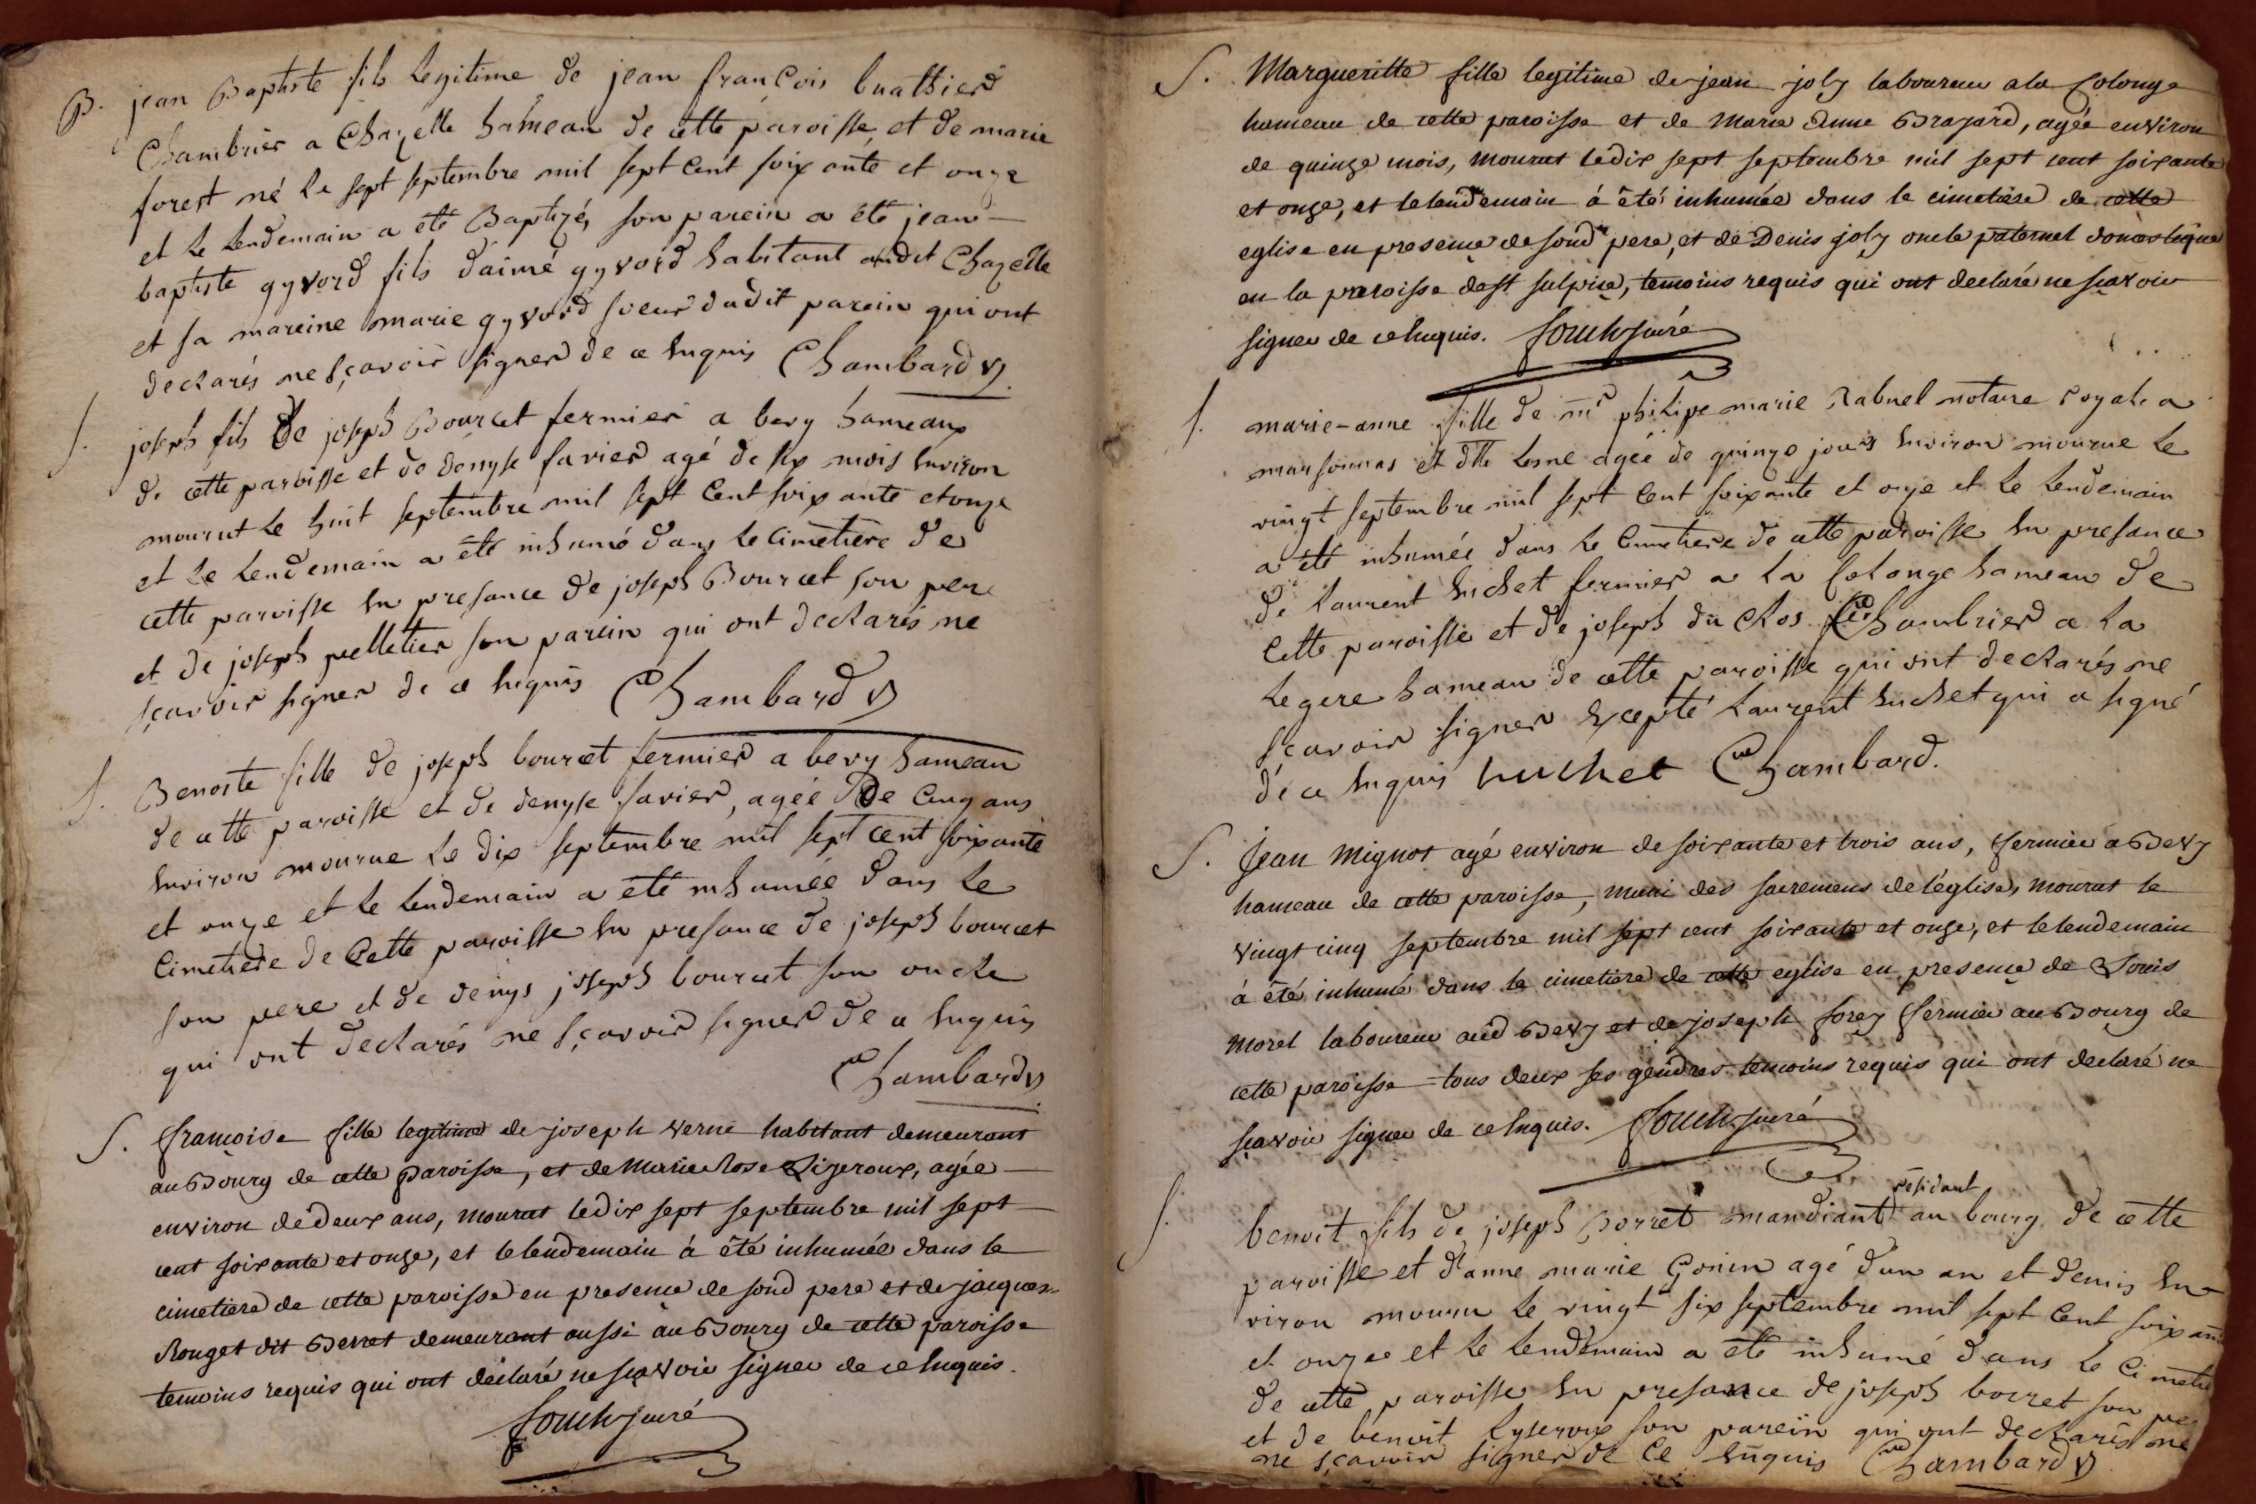 B. jean Baptiste fils legitime de jean francois buathier
Chambrier a Chazelle hameau de cette paroisse et de marie
forest né le sept septembre mil sept cent soixante et onze
et le lendemain a été Baptizé, son parein a été jean
baptiste gyvord fils d'aimé gyvord habitant audit Chazelle
et sa mareine marie gyvord soeur dudit parein qui ont
declarés ne sçavoir signer de ce enquis Chambard v
S. joseph fils de joseph Bourcet fermier a bevy hameaux
de cette paroisse et de denyse favier agé de six mois environ
mourut le huit septembre mil sept cent soixante et onze
et le lendemain a été inhumé dans le cimetiere de
cette paroisse en presance de joseph Bourcet son pere
et de joseph pelletier son parein qui ont declarés ne
sçavoir signer de ce enquis Chambard v
S. Benoite fille de joseph bourcet fermier a bevy hameau
de cette paroisse et de denyse favier, agée De Cinq ans
environ mourue le dix septembre mil sept cent soixante
et onze et le lendemain a été inhumée dans le
Cimetiere de Cette paroisse en presance de joseph bourcet
son pere et de denys joseph bourcet son oncle
qui ont declarés ne sçavoir signer de ce enquis
Chambard v
S. francoise fille legitime de joseph verne habitant demeurant
au Bourg de cette paroisse, et de Marie Rose Lizeroux, agée
environ de deux ans, mourut le dix sept septembre mil sept
cent soixante et onze, et le lendemain à été inhumée dans le
cimetiere de cette paroisse en presence de sond pere et de jacques
Rouget dit Berret demeurant aussi au Bourg de cette paroisse
temoins requis qui ont déclaré ne sçavoir signer de ce enquis.
curé
S. Margueritte fille legitime de jean joly laboureur a la Colonge
hameau de cette paroisse et de Marie Anne Brazard, agée environ
de quinze mois, mourut le dix sept septembre mil sept cent soixante
et onze, et le lendemain à été inhumée dans le cimetiere de cette
eglise en presence de sond pere, et de Denis joly oncle paternel domestique
en la paroisse de st sulpice, temoins requis qui ont declaré ne sçavoir
signer de ce enquis. curé
S. marie-anne fille de mr philipe marie Rabuel notaire royal a
marsonnas et dlle Lesne agée de quinze jours environ mourue le
vingt septembre mil sept cent soixante et onze et le lendemain
a été inhumée dans le Cimetiere de cette paroisse en presance
de laurent huchet fermier a la Colonge hameau de
Cette paroisse et de joseph du clos Chambrier a la
legere hameau de cette paroisse qui ont declarés ne
sçavoir signer excepté laurent huchet qui a signé
de ce enquis huchet Chambard.
S. Jean Mignot agé environ de soixante et trois ans, fermier a Bevy
hameau de cette paroisse, muni des sacremens de l'église, mourut le
vingt cinq septembre mil sept cent soixante et onze, et le lendemain
à été inhumé dans le cimetiere de cette eglise en presence de Louis
Morel laboureur aud Bevy et de joseph forey fermier au Bourg de
cette paroisse tous deux ses gendres temoins requis qui ont declaré ne
sçavoir signer de ce enquis. curé
résidant
S. benoit fils de joseph borret mandiant au bourg de cette
paroisse et d'anne marie Gonin agé d'un an et demis en-
viron mouru le vingt six septembre mil sept Cent soixan
et onze et le lendemain a été inhumé dans le Cimetie
de cette paroisse en presance de joseph borret son pe
et de benoit Lyseroux son parein qui ont declarés ne
ne sçavoir signer de ce enquis Chambard v